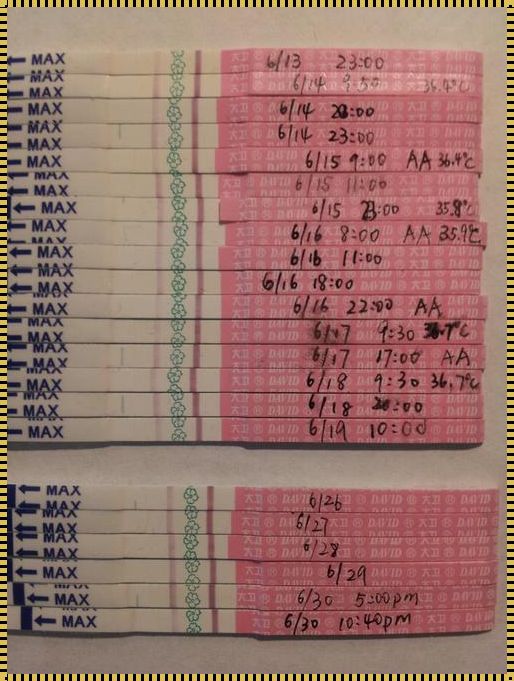 MAX 大卫 DAVID 6/13 23:00
MAX 6/14 9:50 36.4°C
MAX 6/14 23:00
MAX 6/14 23:00
MAX 6/15 9:00 AA 36.4°C
MAX 6/15 11:00
MAX 6/15 23:00 35.8°C
MAX 6/16 8:00 AA 35.9°C
MAX 6/16 11:00
MAX 6/16 18:00
MAX 6/16 22:00 AA
MAX 6/17 9:30 36.7°C
MAX 6/17 17:00 AA
MAX 6/18 9:30 36.7°C
MAX 6/18 20:00
MAX 6/19 10:00
MAX 6/26 大卫 DAVID
MAX 6/27 大卫 DAVID
MAX 6/28 大卫 DAVID
MAX 6/29
MAX 6/30 5:00pm
MAX 6/30 10:40pm